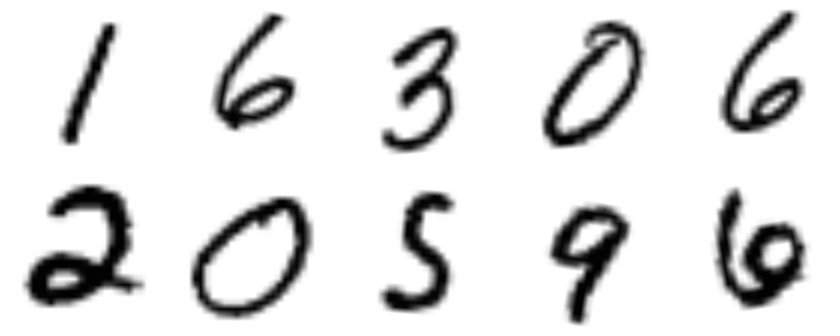 1 6 3 0 6
2 0 5 9 6